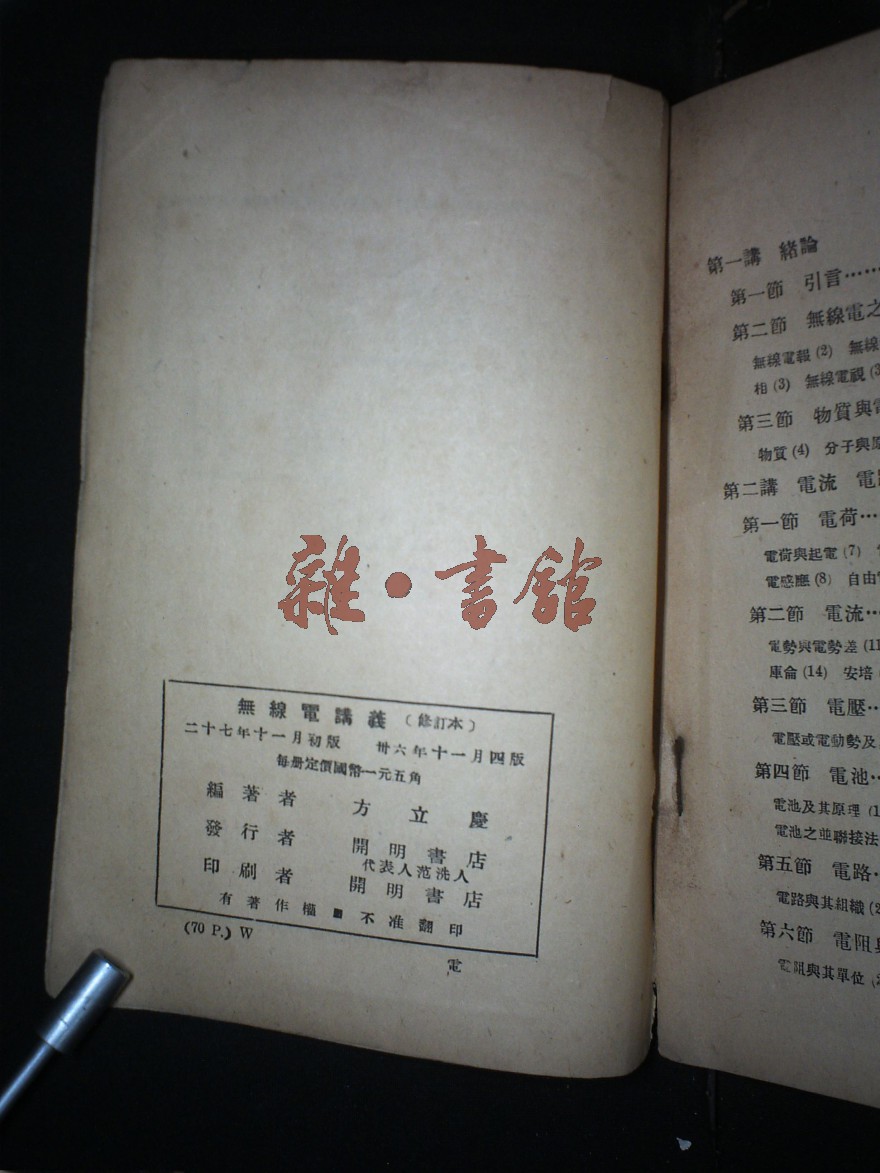 雜·書館
無線電講義(修訂本)
二十七年十一月初版 卅六年十一月四版
每册定價國幣一元五角
編著者 方立慶
發行者 開明書店
代表人范洗人
印刷者 開明書店
有著作權■不准翻印
(70 P.) W
電
第一講 緒論
第一節 引言……
第二節 無線電之
無線電報(2) 無線
相(3) 無線電視(3
第三節 物質與電
物質(4) 分子與原
第二講 電流 電
第一節 電荷…
電荷與起電(7)
電感應(8) 自由
第二節 電流…
電勢與電勢差(11
庫侖(14) 安培
第三節 電壓…
電壓或電動勢及
第四節 電池…
電池及其原理(1
電池之並聯接法
第五節 電路…
電路與其組織(2
第六節 電阻與
電阻與其單位(